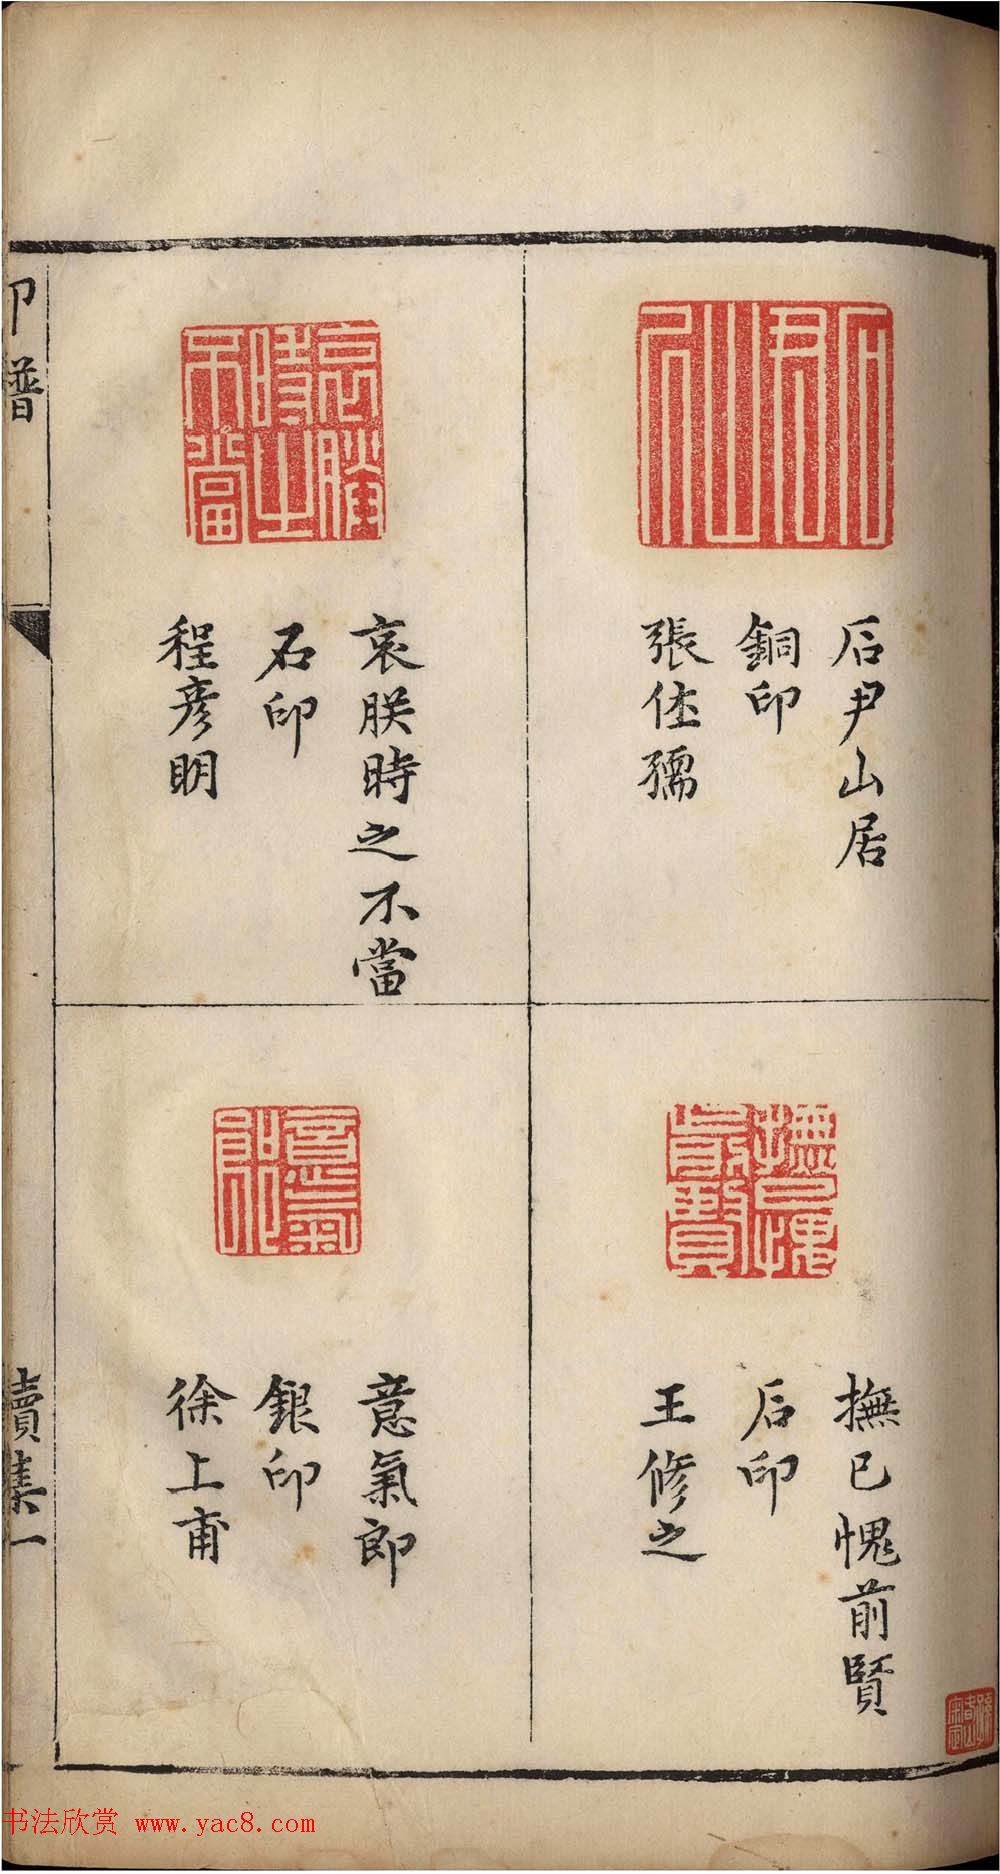 后尹山居
銅印
張仕孺
哀朕時之不當
石印
程彥明
撫己愧前賢
后印
王修之
意氣郎
銀印
徐上甫
印譜
續集一
书法欣赏 www.yac8.com